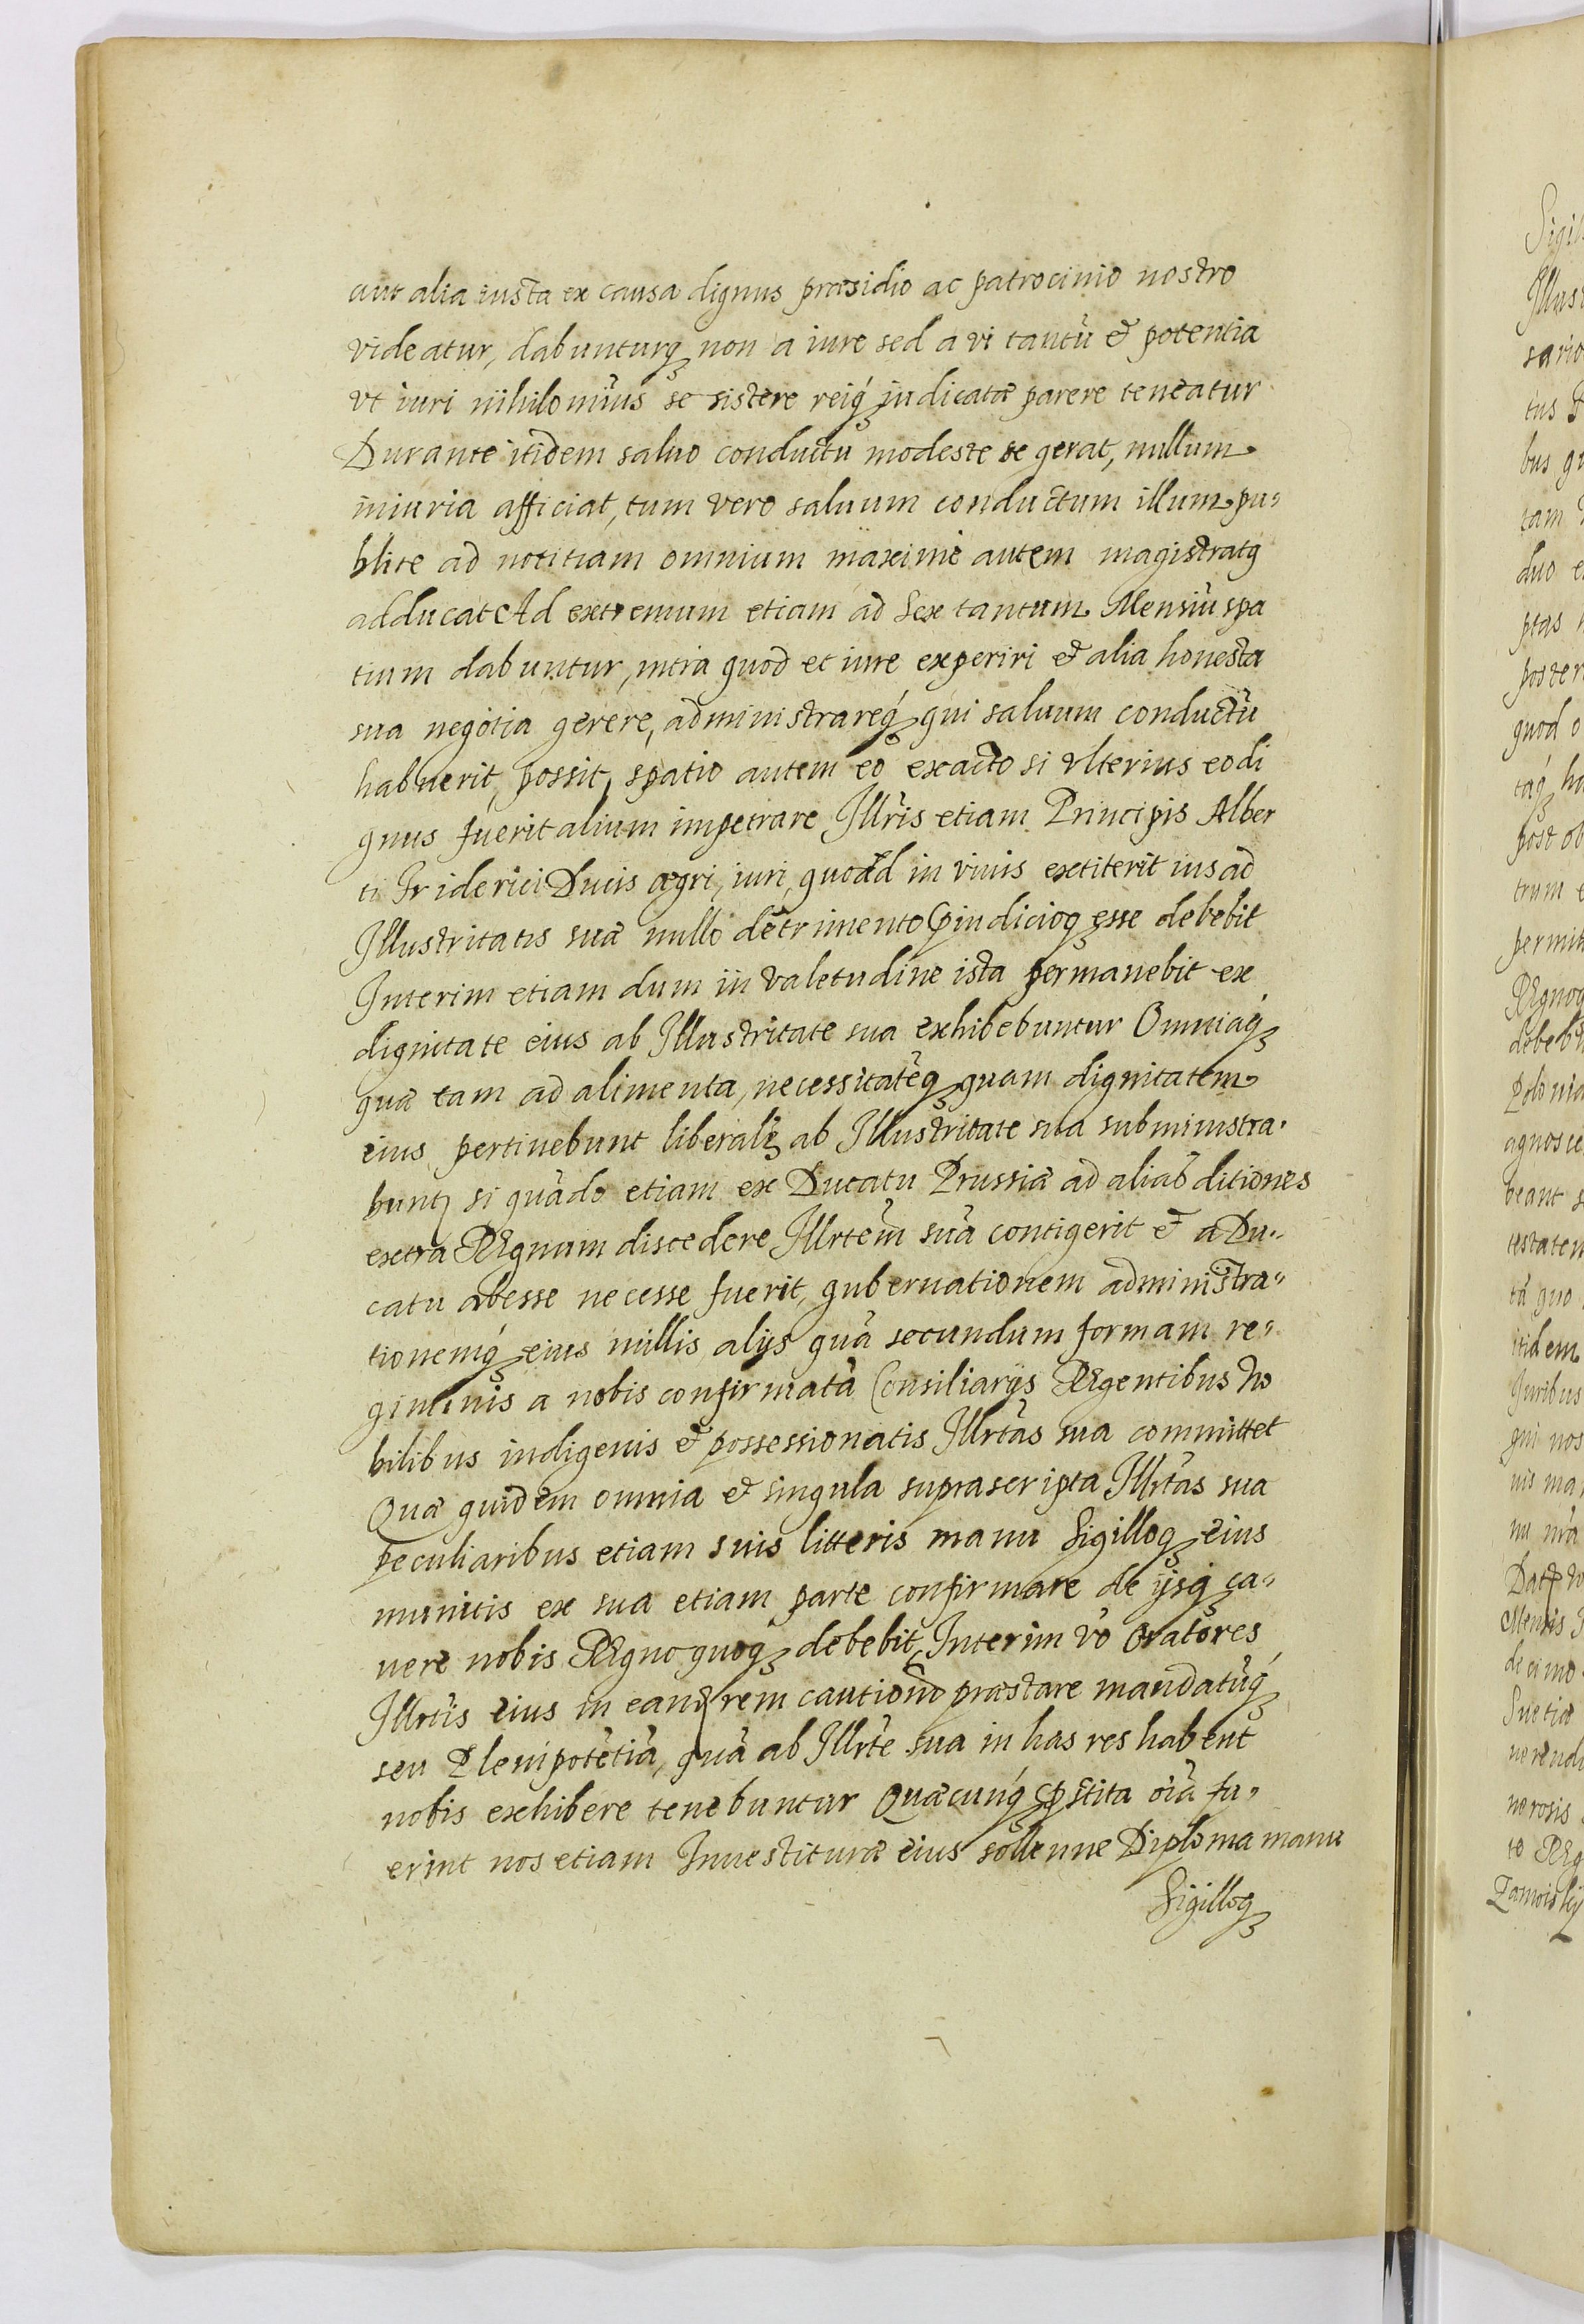 aut alia iusta ex causa dignus præsidio ac patrocinio nostro
videatur, dabunturq₃ non a iure sed a vi tantū & potentia
vt iuri nihilomĩus se sistere reiq₃ iudicatæ parere teneatur
Durante itidem saluo conductu modeste se gerat, nullum
iniuria afficiat, tum vero saluum conductum illum pu-
blice ad notitiam omnium maxime autem magistratq₃
adducat Ad extremum etiam ad sex tantum Mensiū spa
tium dabuntur, intra quod et iure experiri & alia honesta
sua negotia gerere, administrareq₃ qui saluum conductū
habuerit, possit, spatio autem eo exacto si vlterius eo di
gnus fuerit alium impetrare Illris etiam Principis Alber
ti Friderici Ducis ægri, iuri, quoad in viuis extiterit ius ad
Illustritatis suæ nullo detrimento ꝓiudicioq₃ esse debebit
Interim etiam dum in valetudine ista permanebit ex
dignitate eius ab Illustritate sua exhibebuntur Omniaq₃
quæ tam ad alimenta, necessitatēq₃ quam dignitatem
eius pertinebunt liberalr̃ ab Illustritate sua subministra-
bunt₎ si quādo etiam ex Ducatu Prussiæ ad alias ditiones
extra Regnum discedere Illrtem suā contigerit & a Du-
catu abesse necesse fuerit, gubernationem administra-
tionemq₃ eius nullis alijs quā secundum formam re-
giminis a nobis confirmatā Consiliarijs Regentibus No
bilibus indigenis & possessionatis Illrtas sua committet
Quæ quidem omnia & singula suprascripta Illrtas sua
peculiaribus etiam suis litteris manu Sigilloq₃ eius
munitis ex sua etiam parte confirmare de ijsq₃ ca-
uere nobis Regno quoq₃ debebit, Interim vō Oratores
Illrtis eius in eand rem cautionē præstare mandatūq₃
seu Plenipotētiā, quā ab Illrte sua in has res habent
nobis exhibere tenebuntur Quæcunq₃ ꝓstita oīa fu-
erint nos etiam Inuestituræ eius sollenne Diploma manu
Sigilloq₃